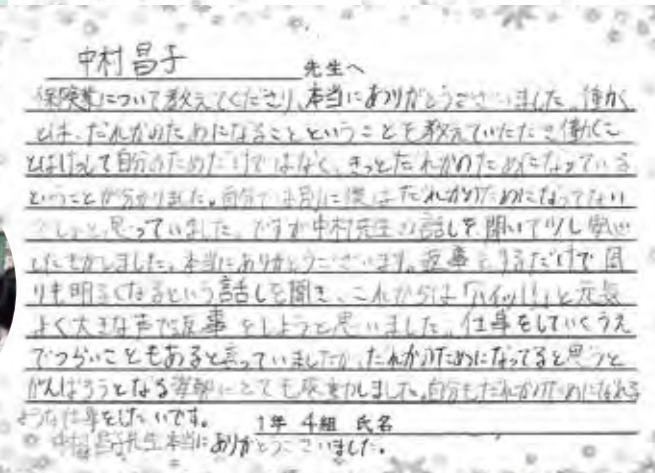 中村昌子 先生へ
保険業について教えてくださり、本当にありがとうございました。働く
とは、だれかのためになることということを教えていただき働くこ
とはけっして自分のためだけではなく、きっとだれかのためになっている
ということが分かりました。自分では別に僕はだれかのためになってない
でしょと思っていました。ですが中村先生の話しを聞いて少し安心
したきがしました。本当にありがとうございます。返事をするだけで周
りも明るくなるという話しを聞き、これからは「ハイッ!!」と元気
よく大きな声で返事をしようと思いました。仕事をしていくうえ
でつらいこともあると言っていましたが、だれかのためになってると思うと
がんばろうとなる姿勢にとても感動しました。自分もだれかのためになれる
ような仕事をしたいです。 1年 4組 氏名
中村昌子先生本当にありがとうございました。